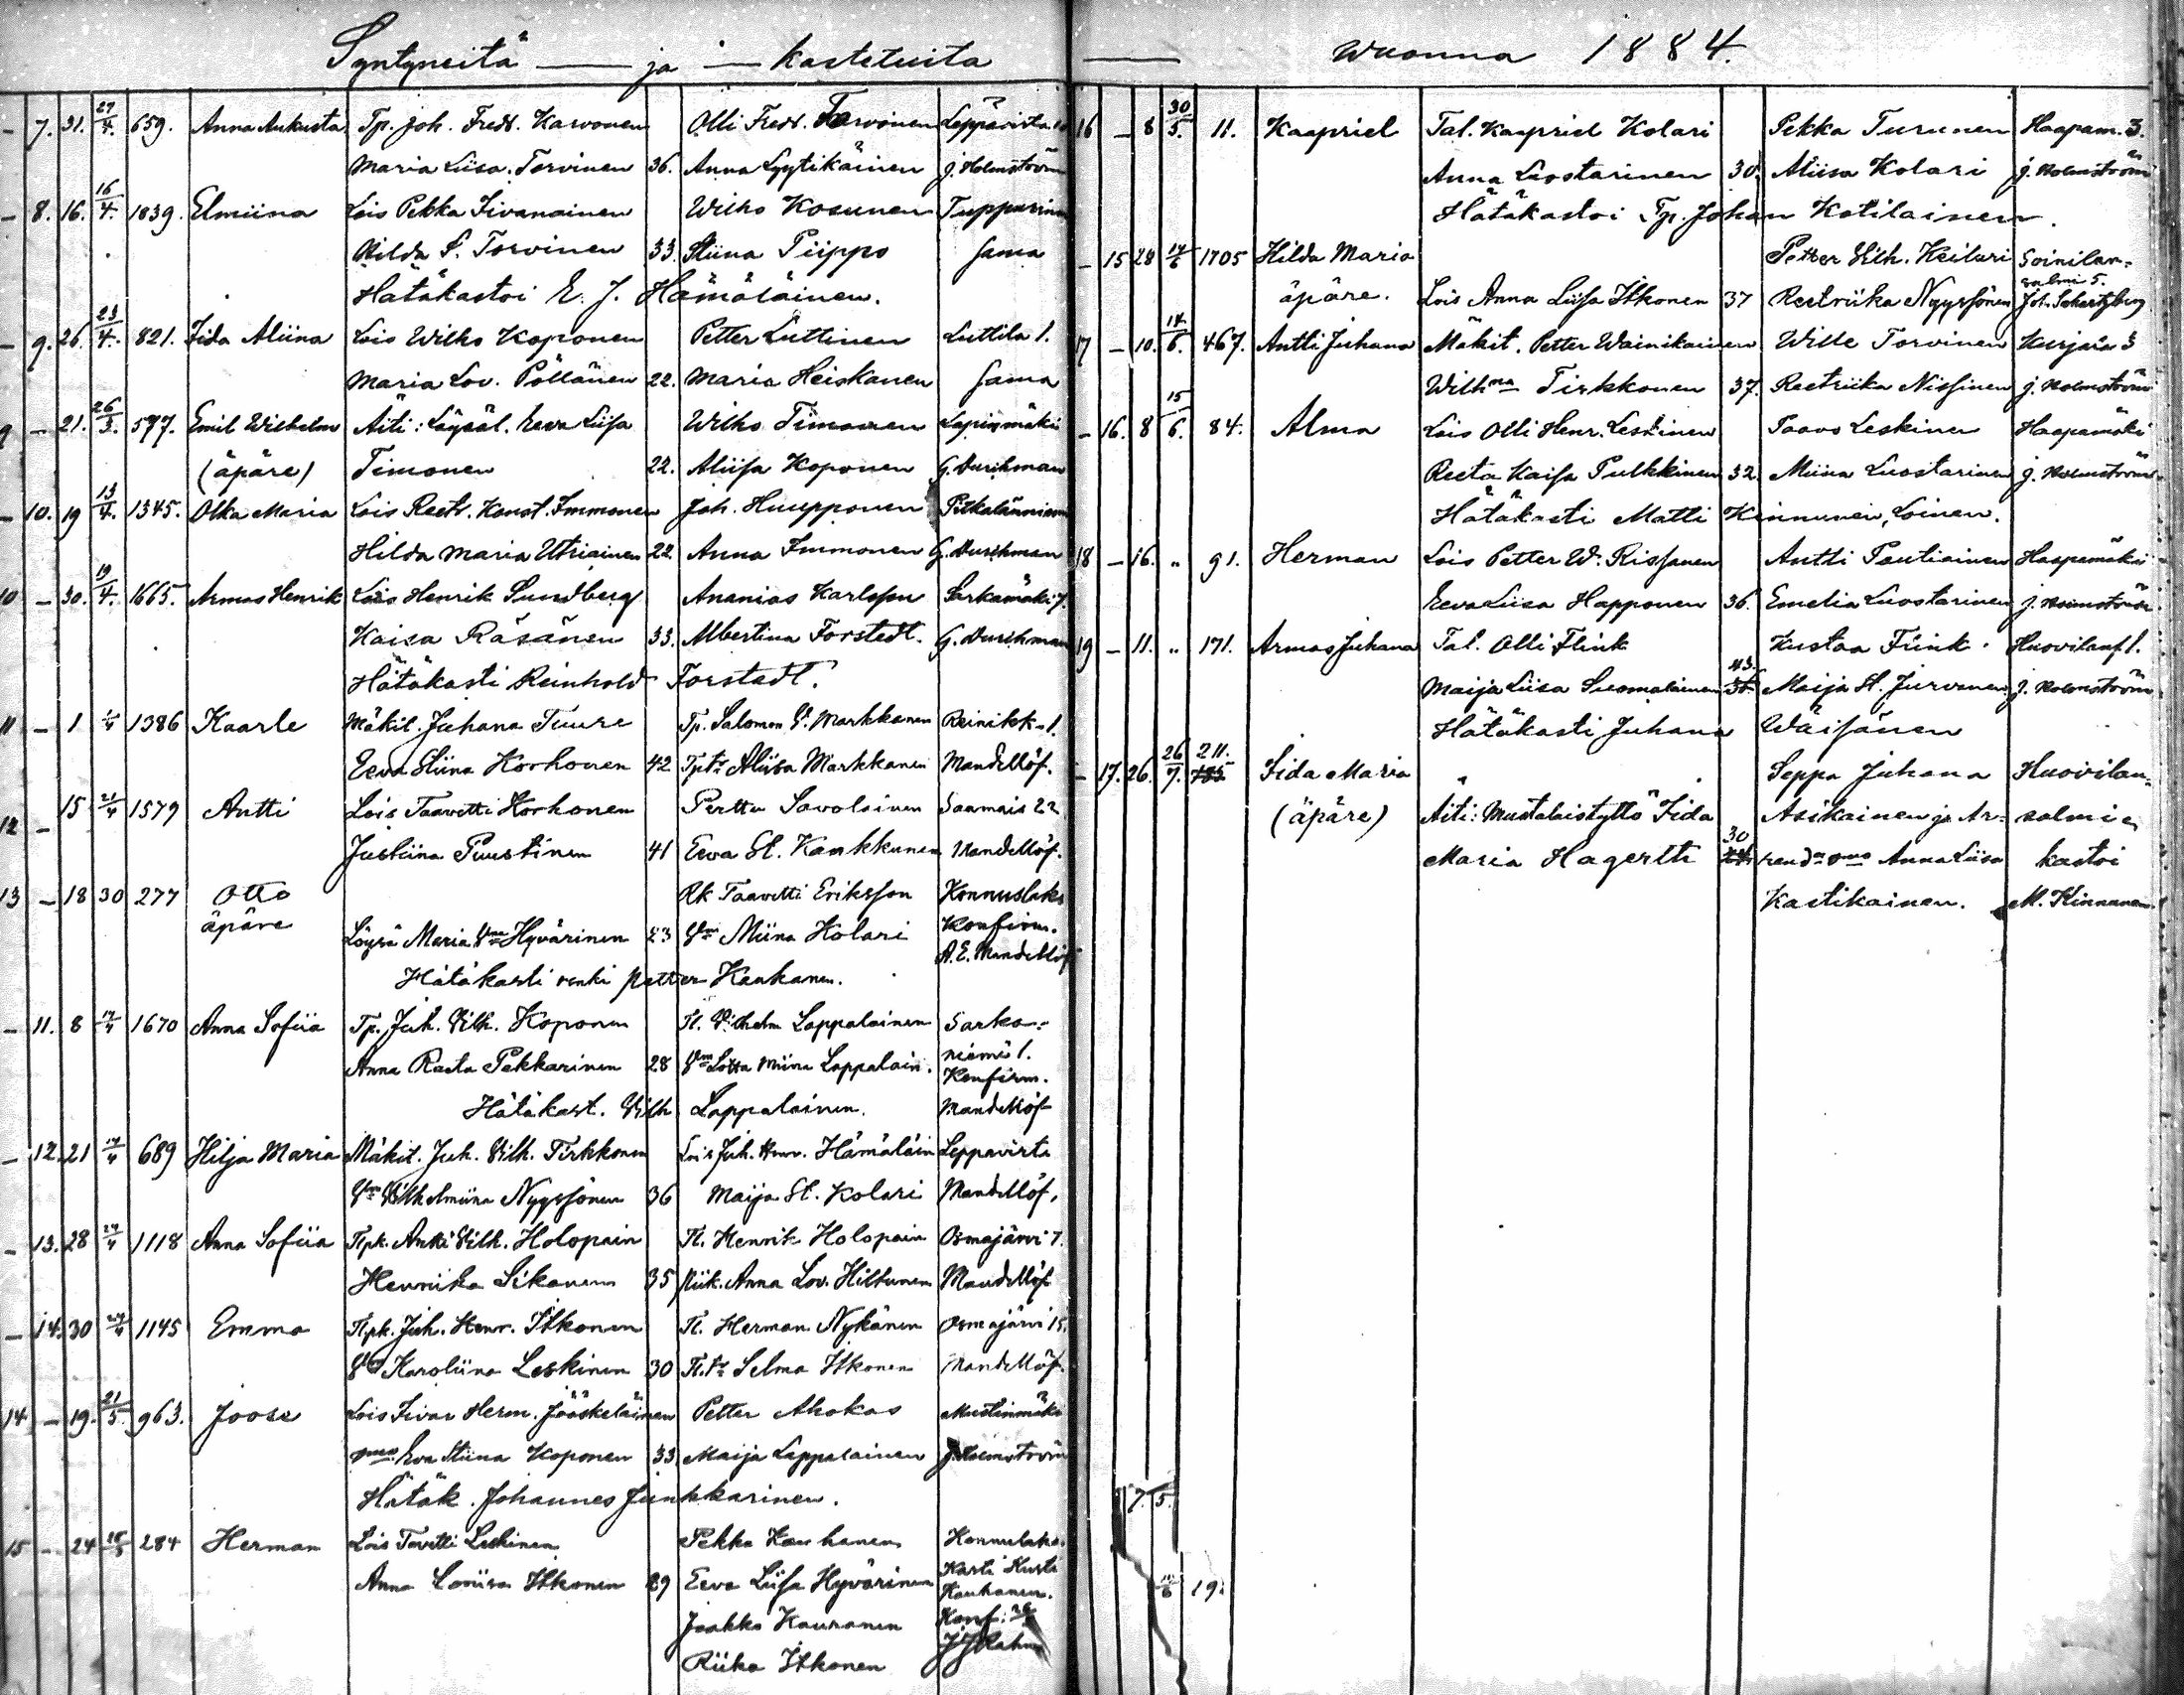 Syntyneitä — ja — kastetuita
— 7. 31. 27/4. 659. Anna Aukusta Tp. Joh. Fredr. Karvonen Olli Fredr. Torvinen Leppävirta 10
Maria Liisa Torvinen 36. Anna Lyytikäinen J. Holmström
— 8. 16. 16/4. 1039. Elmiina Lois Pekka Iivanainen Wilho Kosunen Tuppurinm
Hilda S. Torvinen 33. Stiina Piippo Sama
Hätäkastoi E. J. Hämäläinen.
— 9. 26. 23/4. 821. Iida Aliina Lois Wilho Koponen Petter Luttinen Luttila 1.
Maria Lov. Pöllänen 22. Maria Heiskanen Sama
9 — 21. 26/3. 577. Emil Wilhelm Äiti: Löysäl. Eeva Liisa Wilho Timonen Lapinmäki
(äpäre) Timonen 22. Aliisa Koponen G. Durchman
— 10. 19 13/4. 1345. Olka Maria Lois Reetr. Konst. Immonen Joh. Huupponen Pitkälänniem
Hilda Maria Utriainen 22. Anna Immonen G. Durchman
10 — 30. 19/4. 1665. Armas Henrik Lois Henrik Sundberg Ananias Karlsson Sarkamäki 7.
Kaisa Räsänen 33. Albertina Forstedt. G. Durchman
Hätäkasti Reinhold Forstadt.
11 — 1 1/4 1386 Kaarle Mäkit. Juhana Tuure Tp. Salomon V. Markkanen Reinikk. 1.
Eeva Stiina Korhonen 42 Tptr Aliisa Markkanen Mandellöf.
12 — 15 21/4 1579 Antti Lois Taavetti Korhonen Perttu Savolainen Saamais 22
Justiina Puustinen 41 Eeva St. Kankkunen Mandellöf.
13 — 18 30 277 Otto Rk Taavetti Eriksson Konnuslaks
äpäre Löysä Maria Vma Hyvärinen 23 Vma Miina Kolari Konfirm.
A. E. Mandellöf
Hätäkasti renki Petter Kaukanen.
— 11. 8 14/4 1670 Anna Sofiia Tp. Juh. Vilh. Koponen Tl. Vilhelm Lappalainen Sarka-
Anna Reeta Pekkarinen 28 Vmo Lotta Miina Lappalain. niemi 1.
Konfirm.
Hätäkast. Vilh Lappalainen. Mandellöf
— 12. 21 14/4 689 Hilja Maria Mäkit. Juh. Vilh. Tirkkonen Lois Juh. Henr. Hämäläin Leppävirta
Vmo Vilhelmiina Nyyssönen 36 Maija St. Kolari Mandellöf,
— 13. 28 24/4 1118 Anna Sofiia Tlpk. Antti Vilh. Holopain Tl. Henrik Holopain Osmajärvi 7.
Henrika Sikanen 35 Piik. Anna Lov. Hiltunen Mandellöf
— 14. 30 24/4 1145 Emma Tlpk. Juh. Henr. Itkonen Tl. Herman Nykänen Osmajärvi 15.
Vmo Karoliina Leskinen 30 Tl. tr Selma Itkonen Mandellöf.
14 — 19. 21/5. 963. Joose Lois Iivar Herm. Jääskeläinen Petter Ahokas Mustinmäki
vmo Eva Stiina Koponen 33. Maija Lappalainen J. Holmström
Hätäk. Johannes Junkkarinen.
15 — 24 18/5 284 Herman Lois Tavetti Leskinen Pekka Kauhanen Konnuslaks.
Anna Loviisa Itkonen 29 Eeva Liisa Hyvärinen Kasti Kusti
Kauhanen.
Jaakko Kauranen Konf:
Riika Itkonen
Wuonna 1884.
16 — 8 30/5. 11. Kaapriel Tal. Kaapriel Kolari Pekka Turunen Haapam. 3.
Anna Luostarinen 30. Aliisa Kolari J. Holmström
Hätäkastoi Tp. Johan Kotilainen.
— 15 28 14/6 1705 Hilda Maria Petter Vilh. Keiluri Soinilan-
salmi 5.
äpäre. Lois Anna Liisa Itkonen 37 Reetriika Nyyssönen
17 — 10. 14/6. 467. Antti Juhana Mäkit. Petter Wainikainen Wille Torvinen Kurjala 3
Wilhma Tirkkonen 37. Reetriika Nissinen J. Holmström
— 16. 8 15/6. 84. Alma Lois Olli Henr. Leskinen Paavo Leskinen Haapamäki
Reeta Kaisa Pulkkinen 32. Miina Luostarinen J. Holmström
Hätäkasti Matti Kinnunen, Loinen.
18 — 16. „ 91. Herman Lois Petter W. Rissanen Antti Pautiainen Haapamäki
Eeva Liisa Happonen 36. Emelia Luostarinen J. Holmström
19 — 11. „ 171. Armas Juhana Tal. Olli Flink Kustaa Flink. Huovilansl.
43.
Maija Liisa Suomalainen Maija St. Jurvanen J. Holmström
Hätäkasti Juhana Wäisänen
— 17. 26. 26/7. 211. Iida Maria Seppä Juhana Huovilan-
(äpäre) Äiti: Mustalaistyttö Iida Asikainen ja Ar- salmi
Maria Hagertti 30 rend. vmo Anna Liisa kastoi
Kastikainen. M. Kinnunen.
7. 5.
14/6 19.